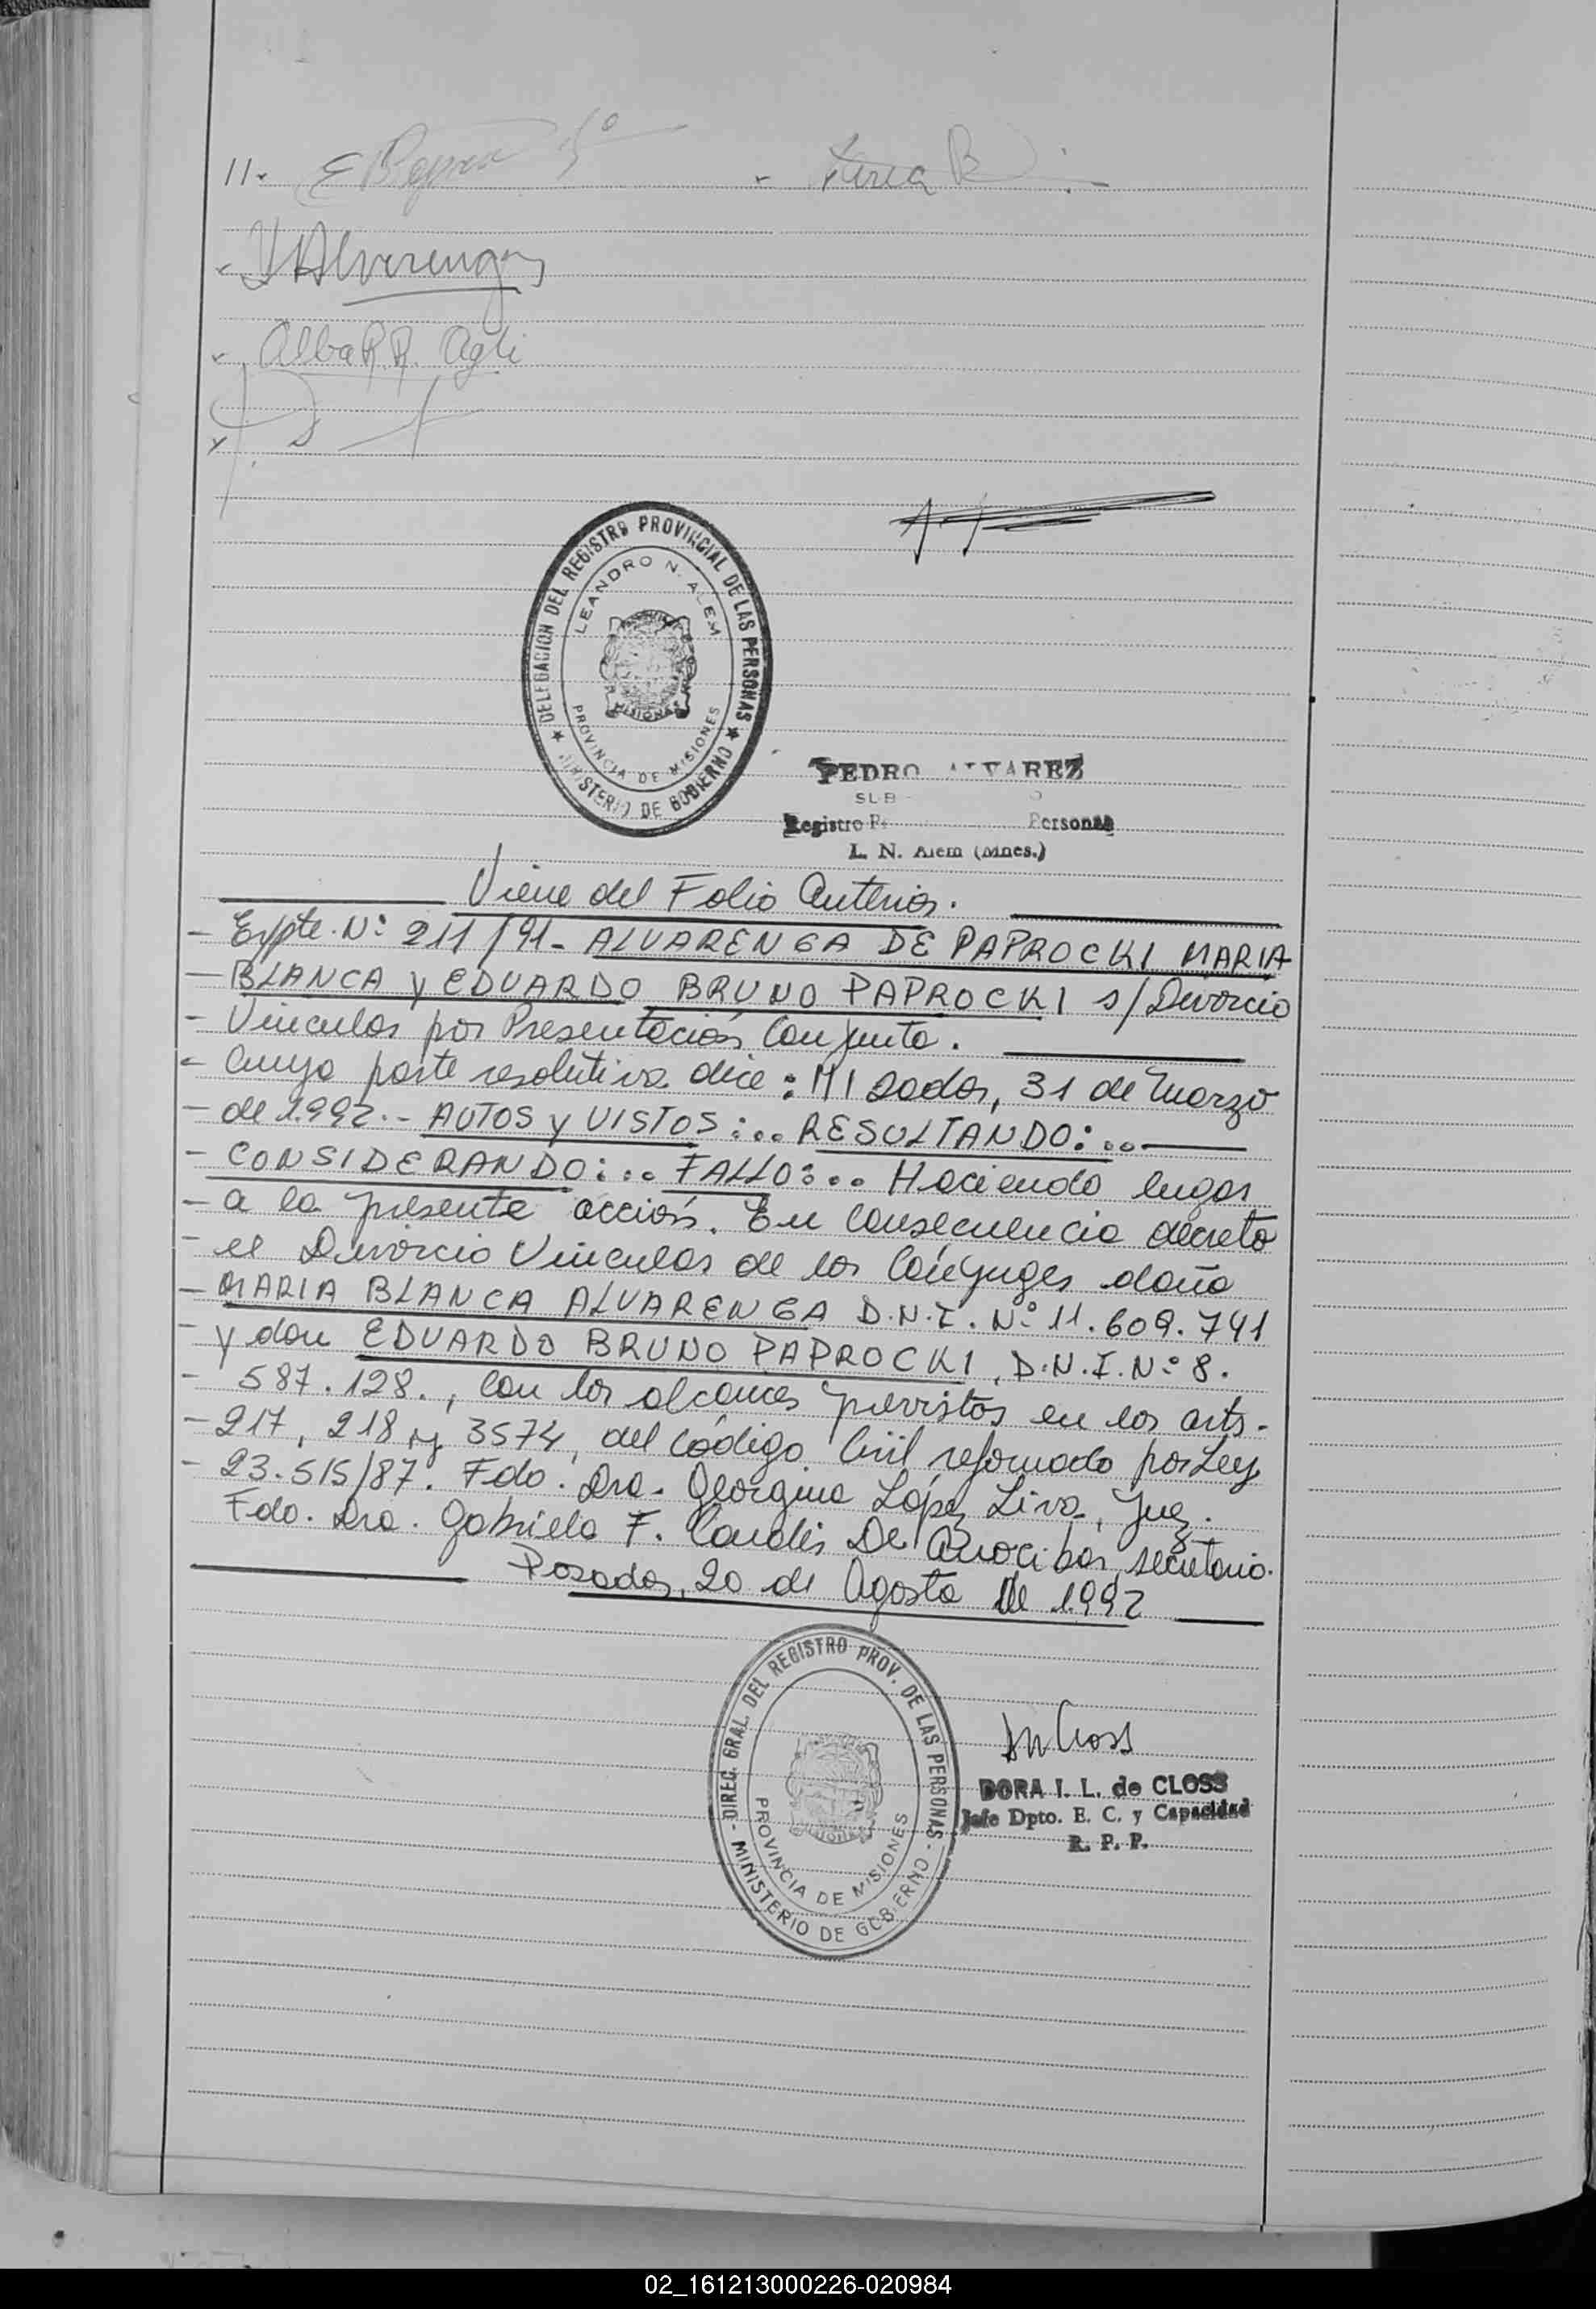 11.
Alba R.R.
DELEGACION DEL REGISTRO PROVINCIAL DE LAS PERSONAS
LEANDRO N. ALEM
MISIONES
PROVINCIA DE MISIONES
MINISTERIO DE GOBIERNO
PEDRO ALVAREZ
SUB
Registro Personas
L. N. Alem (Mnes.)
Viene del Folio Anterior.
- Expte. Nº 211/91- ALVARENGA DE PAPROCKI MARIA
- BLANCA y EDUARDO BRUNO PAPROCKI s/Divorcio
- Vincular por Presentación Conjunta.
- Cuya parte resolutiva dice: "Posadas, 31 de Marzo
- de 1.992.- AUTOS y VISTOS:.. RESULTANDO:..
- CONSIDERANDO:.. FALLO:.. Haciendo lugar
- a la presente acción. En Consecuencia decreto
- el Divorcio Vincular de los Cónyuges doña
- MARIA BLANCA ALVARENGA D.N.I. Nº 11.609.741
- y don EDUARDO BRUNO PAPROCKI, D.N.I. Nº 8.
- 587.128., con los alcances previstos en los arts.
- 217, 218 y 3574, del Código Civil reformado por Ley
- 23.515/87. Fdo. Dra. Georgina López Liva, Juez.
Fdo. Dra. Gabriela F. De secretaria.
Posadas, 20 de Agosto de 1.992
DIREC. GRAL. DEL REGISTRO PROV. DE LAS PERSONAS -
MISIONES
PROVINCIA DE MISIONES
MINISTERIO DE GOBIERNO -
DORA I. L. de CLOSS
Jefe Dpto. E. C. y Capacidad
R. P. P.
02_161213000226-020984